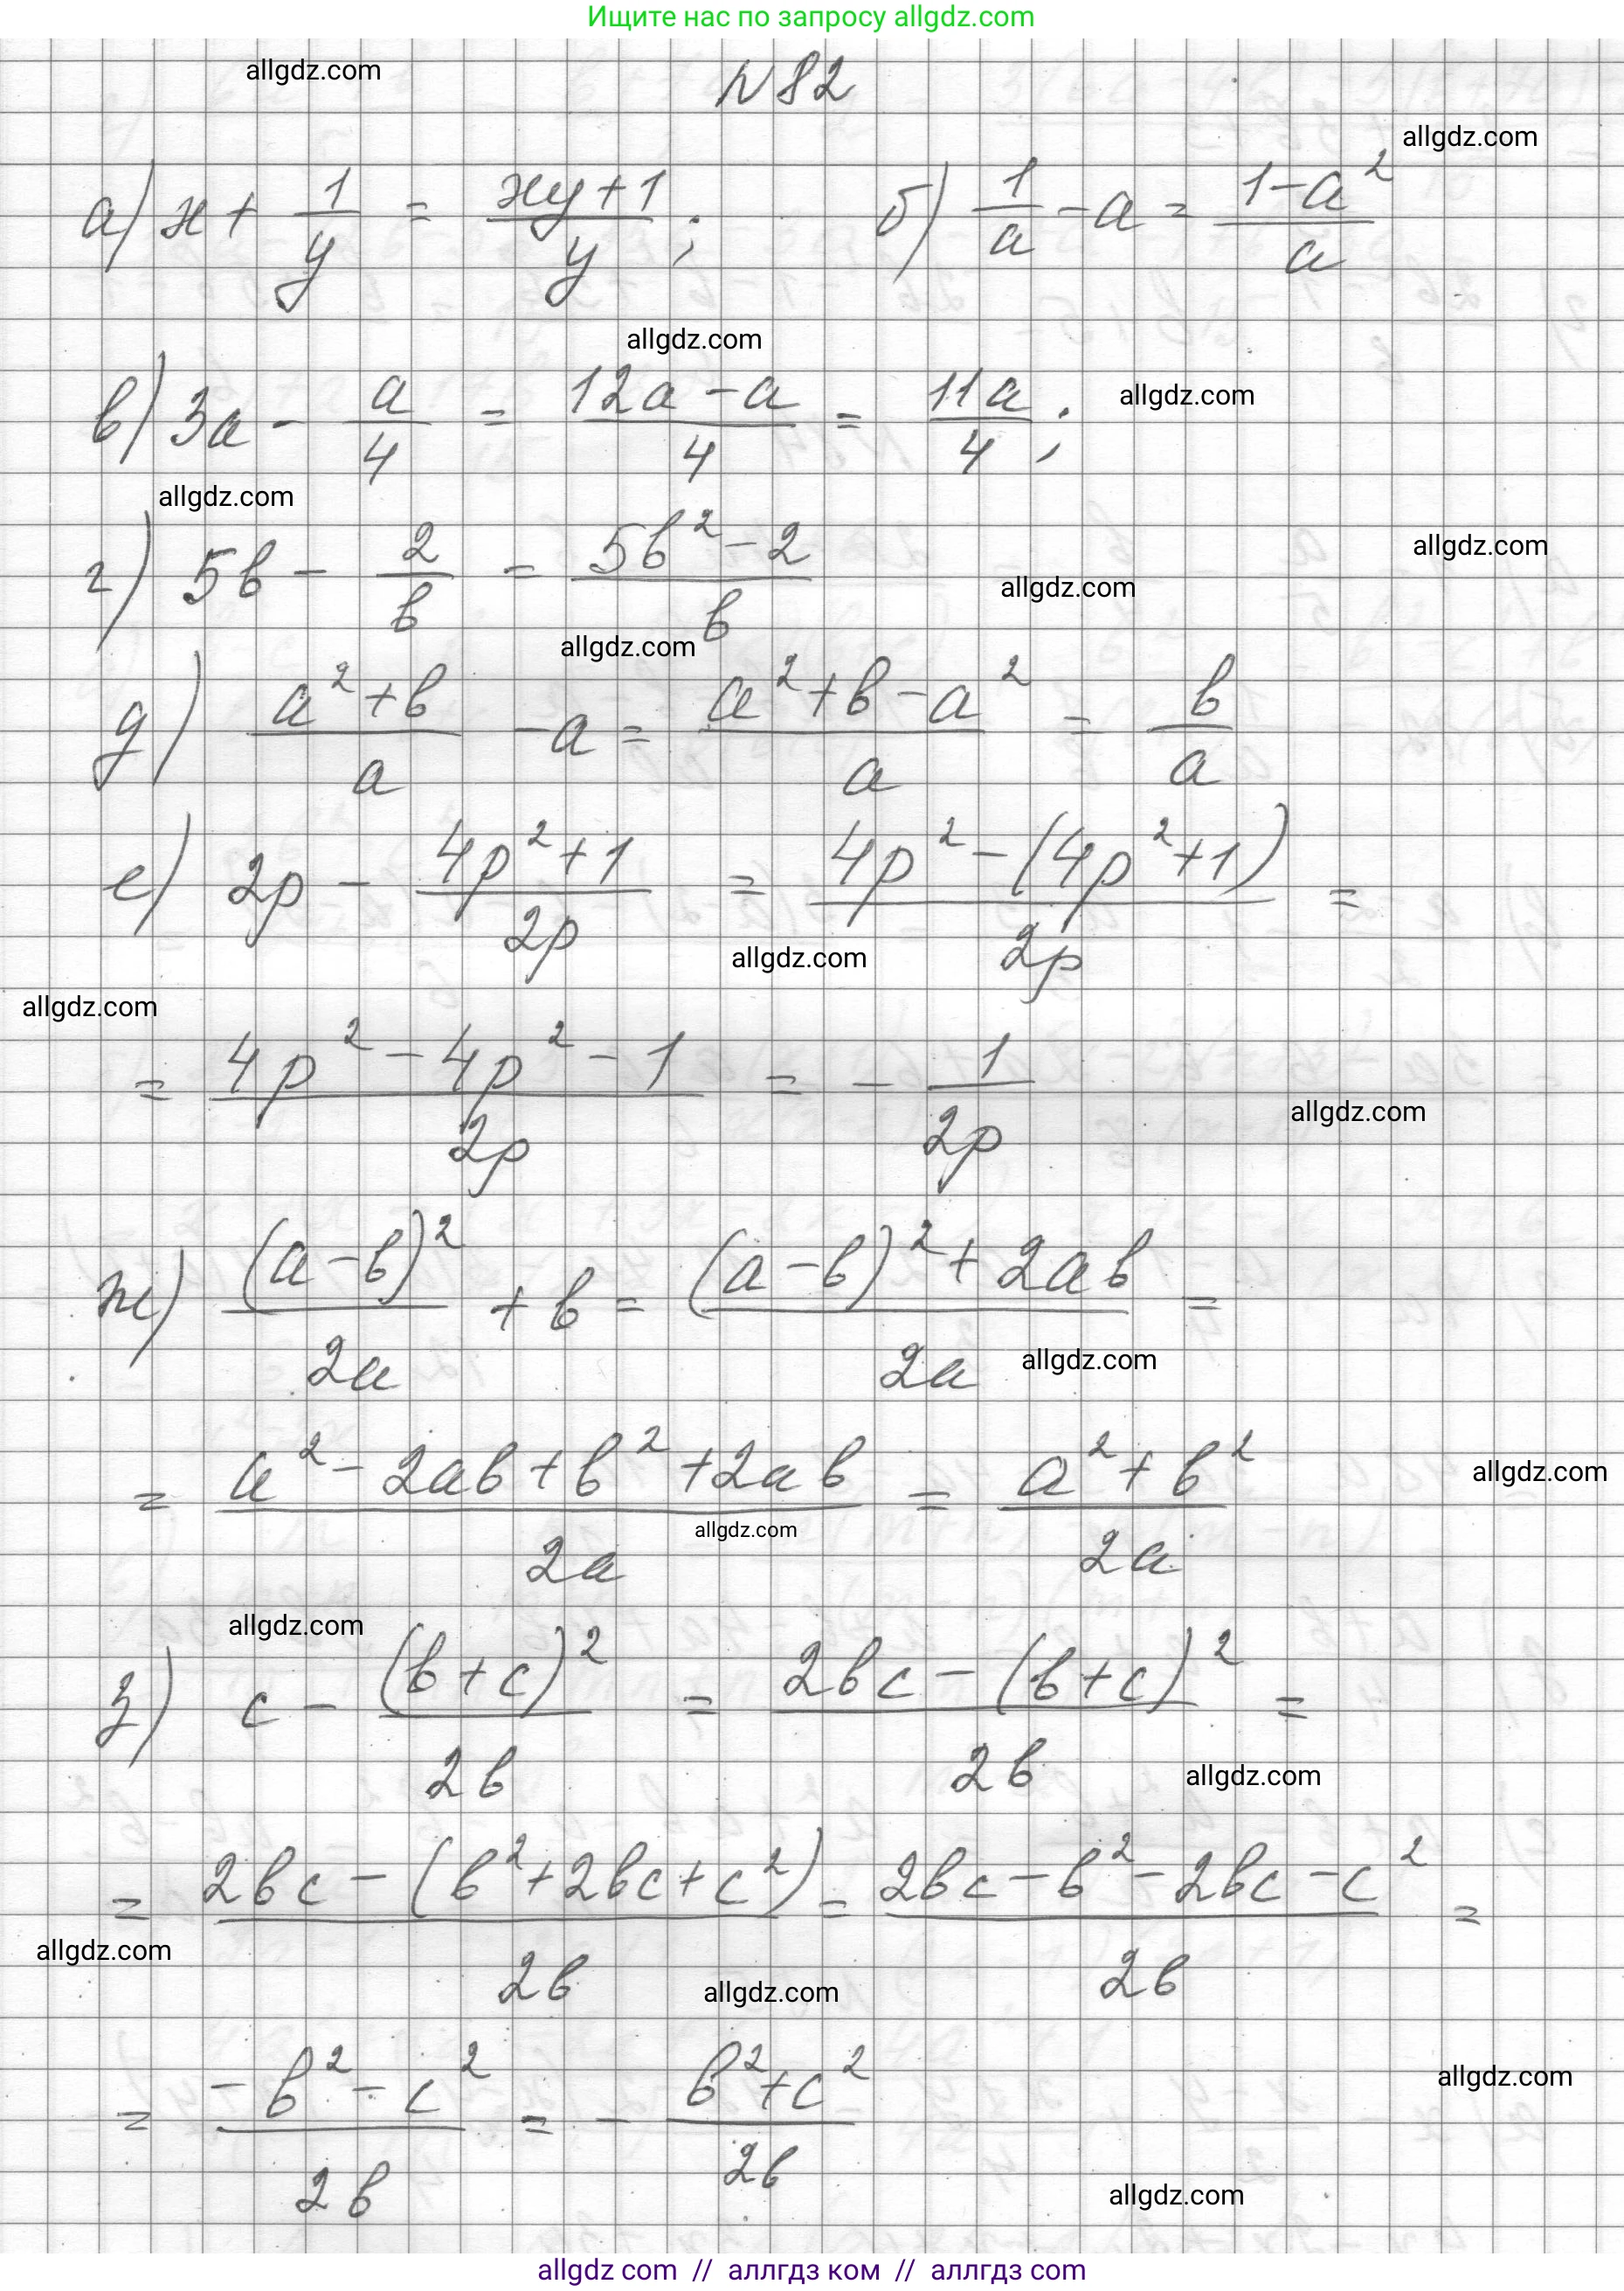 Ищите нас по запросу allgdz.com
allgdz.com
N 82
allgdz.com
а) x + 1/y = (xy+1)/y ; б) 1/a - a = (1-a²)/a
allgdz.com
в) 3a - a/4 = (12a-a)/4 = 11a/4 ;
allgdz.com
allgdz.com
г) 5b - 2/b = (5b²-2)/b
allgdz.com
allgdz.com
allgdz.com
д) (a²+b)/a - a = (a²+b-a²)/a = b/a
е) 2p - (4p²+1)/2p = (4p²-(4p²+1))/2p =
allgdz.com
allgdz.com
= (4p²-4p²-1)/2p = - 1/2p
allgdz.com
ж) (a-b)²/2a + b = ((a-b)²+2ab)/2a =
allgdz.com
= (a²-2ab+b²+2ab)/2a = (a²+b²)/2a
allgdz.com
allgdz.com
allgdz.com
з) c - (b+c)²/2b = (2bc-(b+c)²)/2b =
allgdz.com
= (2bc-(b²+2bc+c²))/2b = (2bc-b²-2bc-c²)/2b =
allgdz.com
allgdz.com
= (-b²-c²)/2b = - (b²+c²)/2b
allgdz.com
allgdz.com
allgdz com // аллгдз ком // аллгдз com